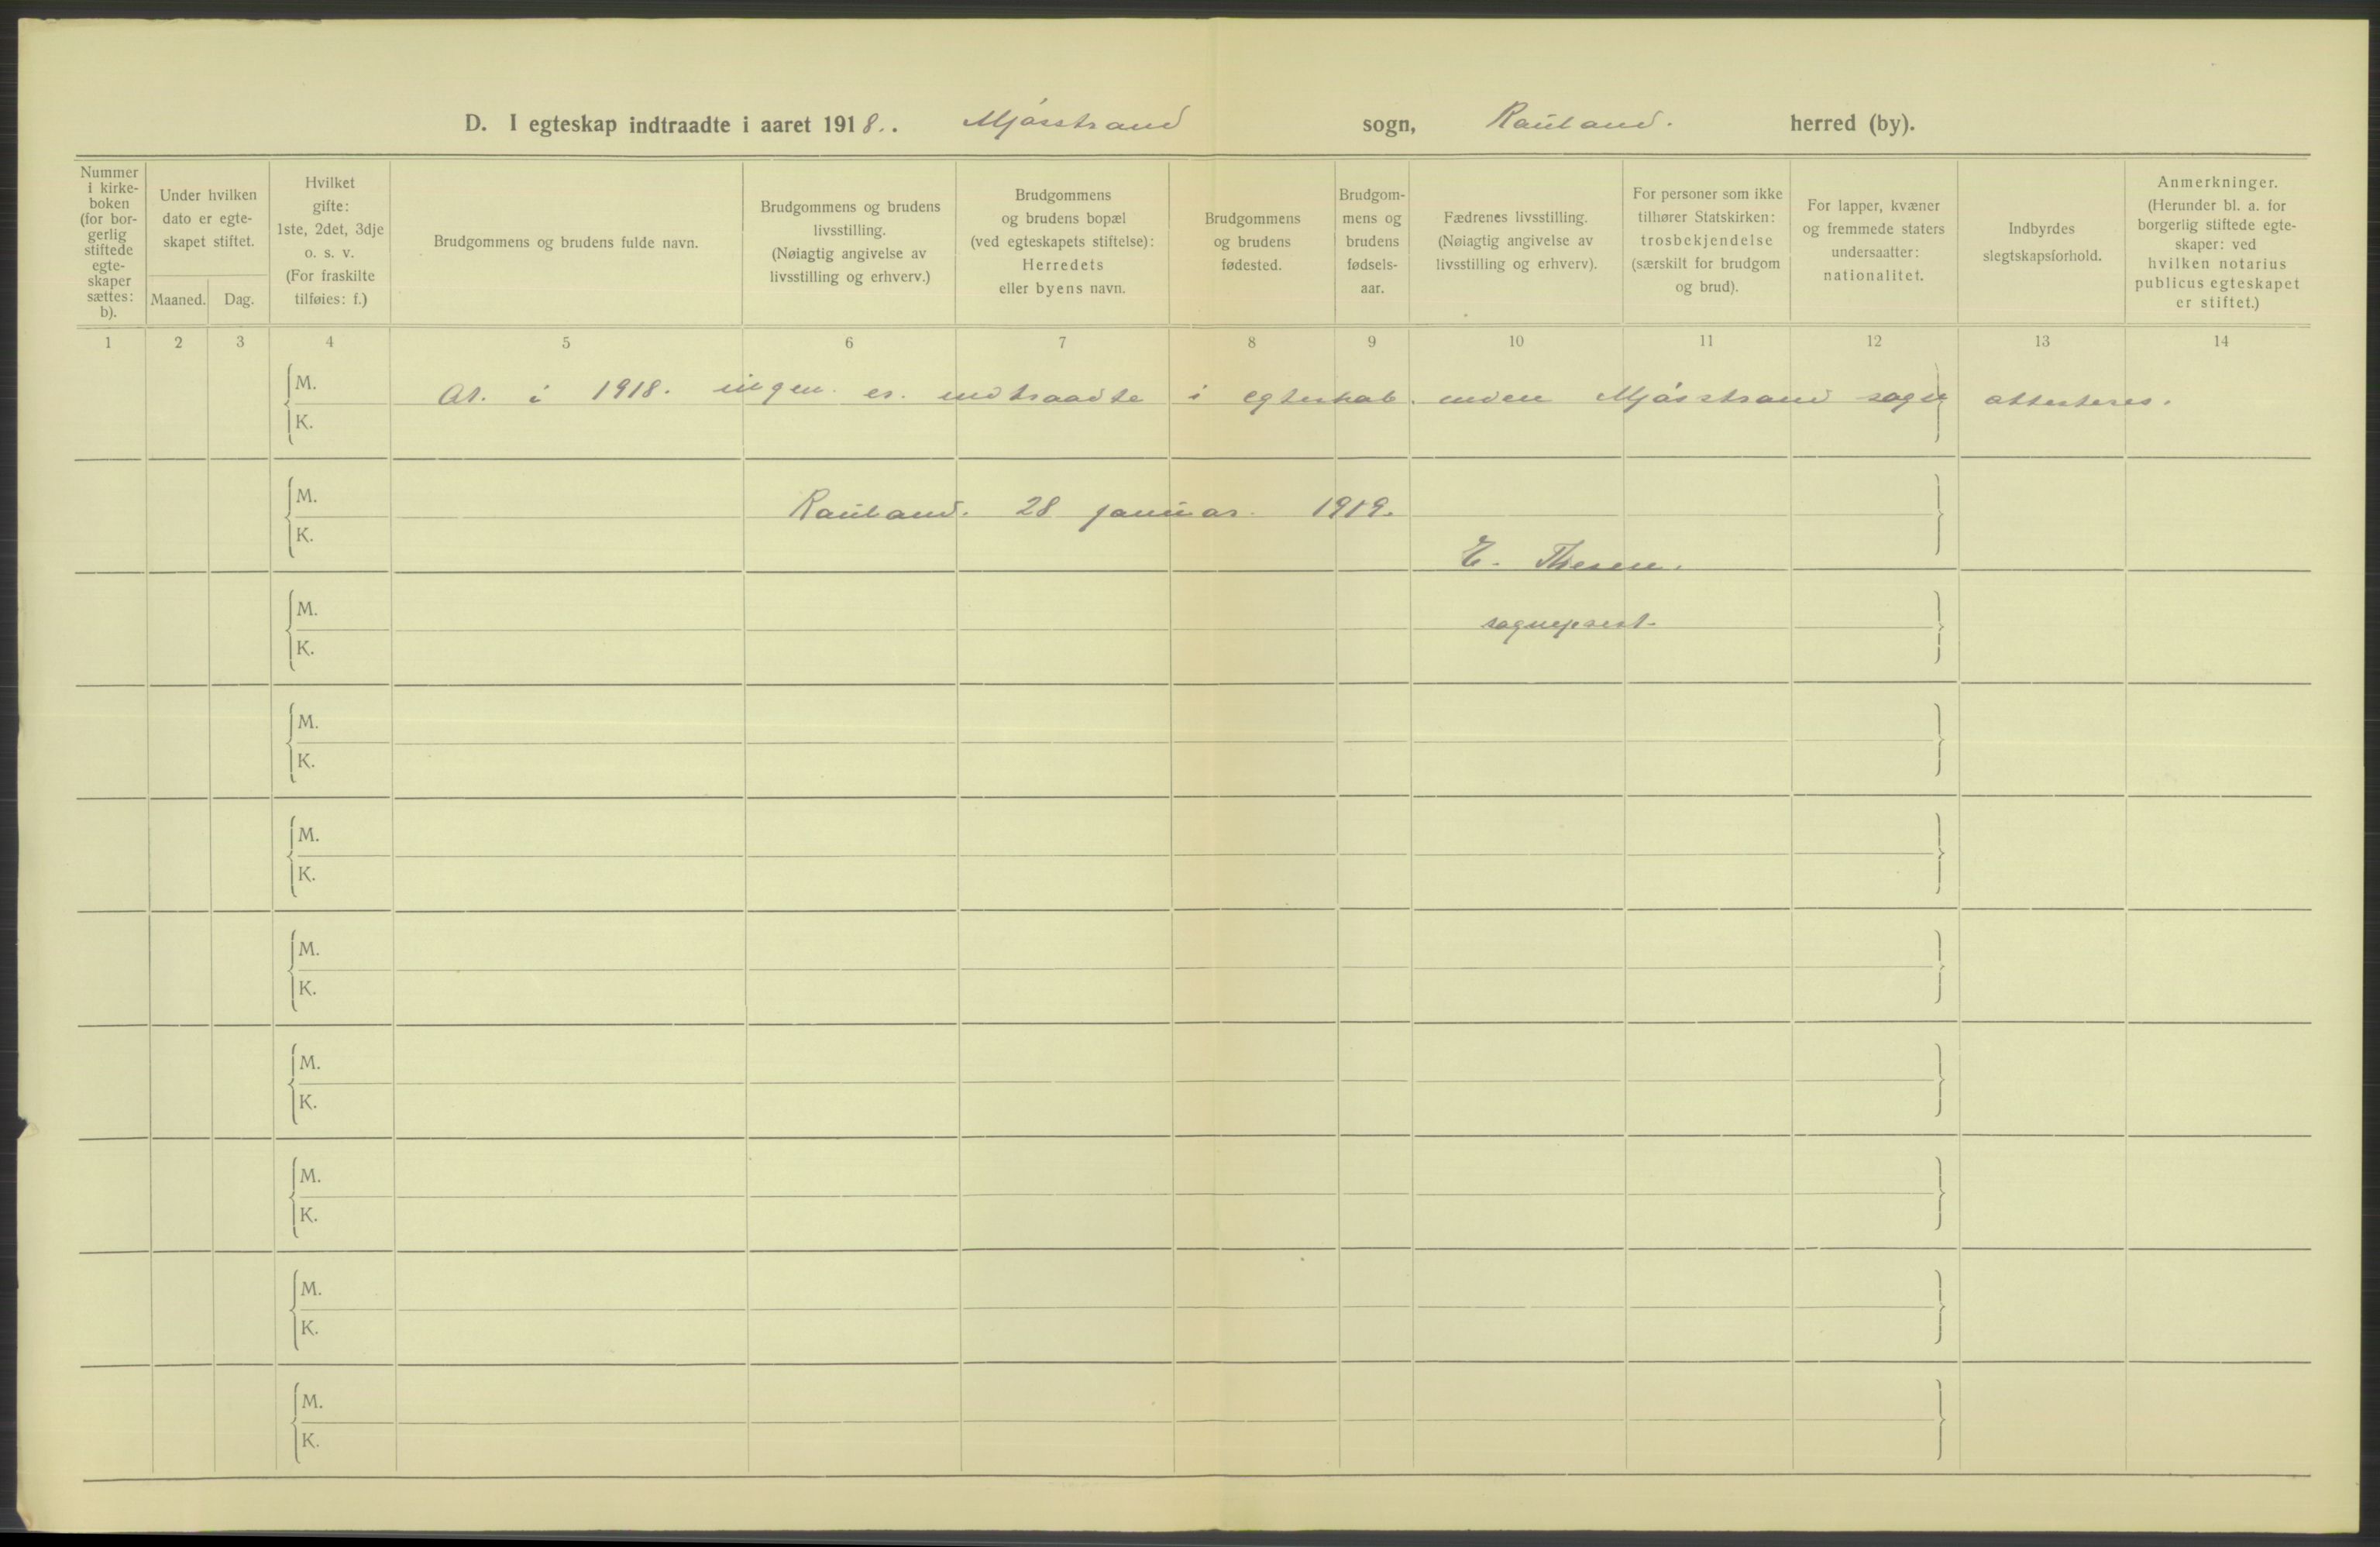 D. I egteskap indtraadte i aaret 1918. Mjøsstrand sogn, Rauland. herred (by).
Nummer i kirke-boken (for bor-gerlig stiftede egte-skaper sættes: b).
Under hvilken dato er egte-skapet stiftet.
Maaned. Dag.
Hvilket gifte: 1ste, 2det, 3dje o. s. v. (For fraskilte tilføies: f.)
Brudgommens og brudens fulde navn.
Brudgommens og brudens livsstilling. (Nøiagtig angivelse av livsstilling og erhverv.)
Brudgommens og brudens bopæl (ved egteskapets stiftelse): Herredets eller byens navn.
Brudgommens og brudens fødested.
Brudgom-mens og brudens fødsels-aar.
Fædrenes livsstilling. (Nøiagtig angivelse av livsstilling og erhverv).
For personer som ikke tilhører Statskirken: trosbekjendelse (særskilt for brudgom og brud).
For lapper, kvæner og fremmede staters undersaatter: nationalitet.
Indbyrdes slegtskapsforhold.
Anmerkninger. (Herunder bl. a. for borgerlig stiftede egte-skaper: ved hvilken notarius publicus egteskapet er stiftet.)
1 2 3 4 5 6 7 8 9 10 11 12 13 14
M.
At. i 1918. ingen er. indtraadte i egteskab. inden Mjøsstrand sogn attesteres.
K.
M.
Rauland. 28 januar. 1919.
K.
E. Thesen.
M.
sogneprest.
K.
M.
K.
M.
K.
M.
K.
M.
K.
M.
K.
M.
K.
M.
K.